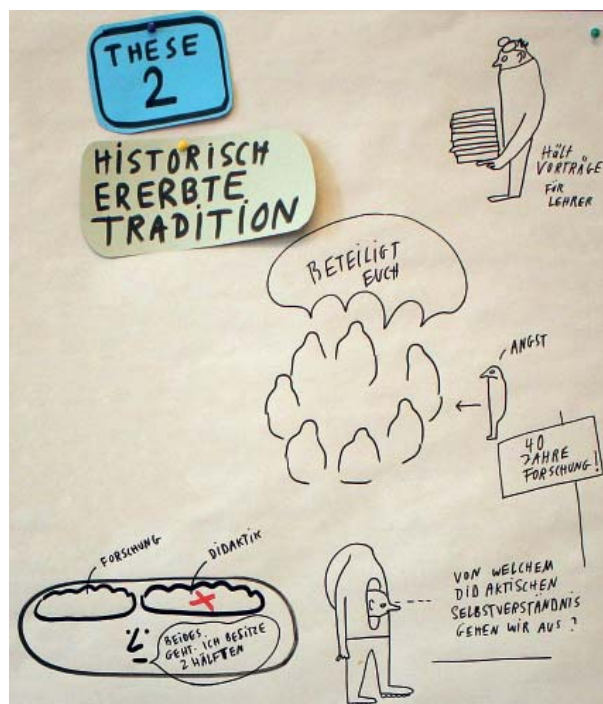 THESE
2
HISTORISCH
ERERBTE
TRADITION
HÄLT
VORTRÄGE
FÜR
LEHRER
BETEILIGT
EUCH
ANGST
40
JAHRE
FORSCHUNG!
FORSCHUNG
DIDAKTIK
BEIDES
GEHT. ICH BESITZE
2 HÄLFTEN
VON WELCHEM
DIDAKTISCHEN
SELBSTVERSTÄNDNIS
GEHEN WIR AUS?